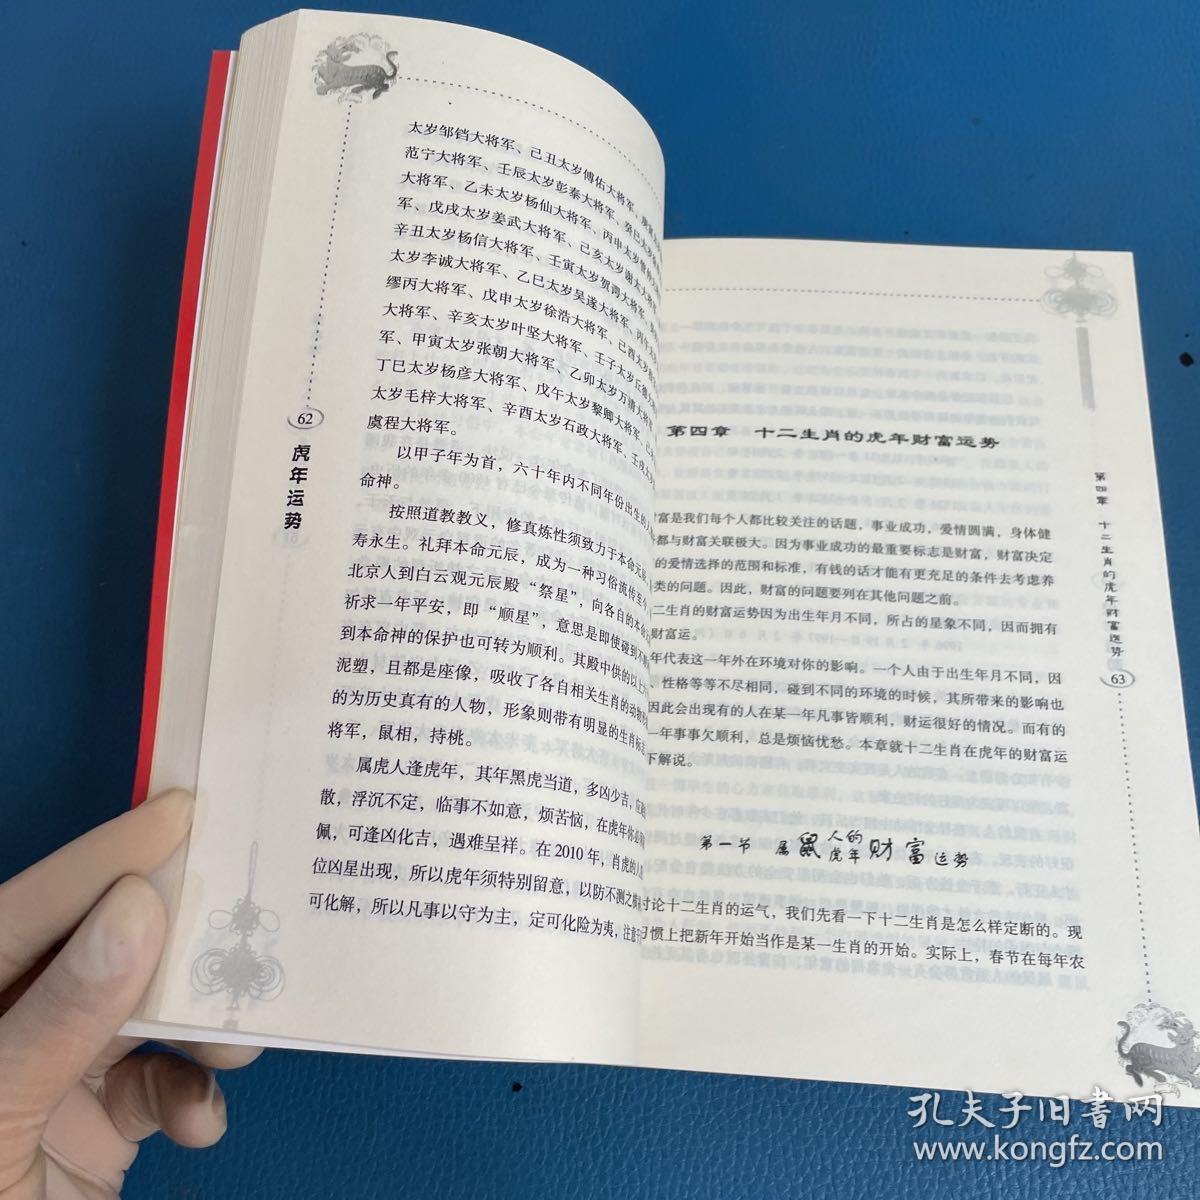 太岁邹铛大将军、己丑太岁傅佑大将军、庚寅
范宁大将军、壬辰太岁彭泰大将军、癸巳太岁
大将军、乙未太岁杨仙大将军、丙申太岁管
军、戊戌太岁姜武大将军、己亥太岁谢太大将
辛丑太岁杨信大将军、壬寅太岁贺谔大将军、
太岁李诚大将军、乙巳太岁吴遂大将军、丙午
缪丙大将军、戊申太岁徐浩大将军、己酉太岁
大将军、辛亥太岁叶坚大将军、壬子太岁丘德大
军、甲寅太岁张朝大将军、乙卯太岁万清大将军
丁巳太岁杨彦大将军、戊午太岁黎卿大将军、己
太岁毛梓大将军、辛酉太岁石政大将军、壬戌太岁
虞程大将军。
以甲子年为首，六十年内不同年份出生的人
命神。
按照道教教义，修真炼性须致力于本命元辰
寿永生。礼拜本命元辰，成为一种习俗流传至今
北京人到白云观元辰殿“祭星”，向各自的本命
祈求一年平安，即“顺星”，意思是即使碰到不
到本命神的保护也可转为顺利。其殿中供的以上
泥塑，且都是座像，吸收了各自相关生肖的动物
的为历史真有的人物，形象则带有明显的生肖标志
将军，鼠相，持桃。
属虎人逢虎年，其年黑虎当道，多凶少吉，
散，浮沉不定，临事不如意，烦苦恼，在虎年
佩，可逢凶化吉，遇难呈祥。在2010年，肖虎的人
位凶星出现，所以虎年须特别留意，以防不测之
可化解，所以凡事以守为主，定可化险为夷，注意
62
虎年运势
第四章 十二生肖的虎年财富运势
富是我们每个人都比较关注的话题，事业成功，爱情圆满，身体健
都与财富关联极大。因为事业成功的最重要标志是财富，财富决定
的爱情选择的范围和标准，有钱的话才能有更充足的条件去考虑养
类的问题。因此，财富的问题要列在其他问题之前。
二生肖的财富运势因为出生年月不同，所占的星象不同，因而拥有
财富运。
年代表这一年外在环境对你的影响。一个人由于出生年月不同，因
、性格等等不尽相同，碰到不同的环境的时候，其所带来的影响也
因此会出现有的人在某一年凡事皆顺利，财运很好的情况。而有的
一年事事欠顺利，总是烦恼忧愁。本章就十二生肖在虎年的财富运
下解说。
第一节 属鼠人的虎年财富运势
讨论十二生肖的运气，我们先看一下十二生肖是怎么样定断的。现
习惯上把新年开始当作是某一生肖的开始。实际上，春节在每年农
第四章 十二生肖的虎年财富运势
63
孔夫子旧书网
www.kongfz.com